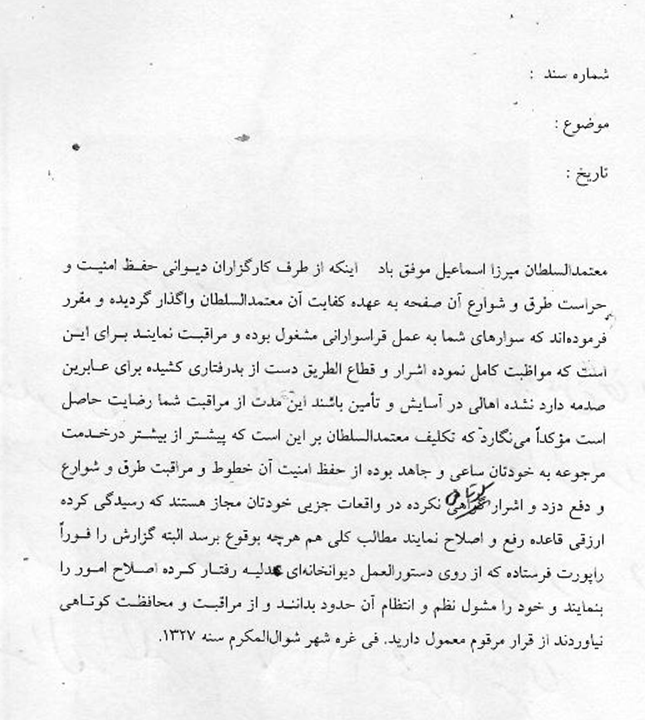 شماره سند :
موضوع :
تاریخ :
معتمدالسلطان میرزا اسماعیل موفق باد اینکه از طرف کارگزاران دیوانی حفظ امنیت و
حراست طرق و شوارع آن صفحه به عهده کفایت آن معتمدالسلطان واگذار گردیده و مقرر
فرموده‌اند که سوارهای شما به عمل قراسورانی مشغول بوده و مراقبت نمایند برای این
است که مواظبت کامل نموده اشرار و قطاع الطریق دست از بدرفتاری کشیده برای عابرین
صدمه دارد نشده اهالی در آسایش و تأمین باشند این مدت از مراقبت شما رضایت حاصل
است مؤکداً می‌نگارد که تکلیف معتمدالسلطان بر این است که پیشتر از بیشتر درخدمت
مرجوعه به خودتان ساعی و جاهد بوده از حفظ امنیت آن خطوط و مراقبت طرق و شوارع
و دفع دزد و اشرار کوتاهی نکرده در واقعات جزیی خودتان مجاز هستند که رسیدگی کرده
ارزقی قاعده رفع و اصلاح نمایند مطالب کلی هم هرچه بوقوع برسد البته گزارش را فوراً
راپورت فرستاده که از روی دستورالعمل دیوانخانه‌ای عدلیه رفتار کرده اصلاح امور را
بنمایند و خود را مشول نظم و انتظام آن حدود بدانند و از مراقبت و محافظت کوتاهی
نیاوردند از قرار مرقوم معمول دارید. فی غره شهر شوال‌المکرم سنه ۱۳۲۷.